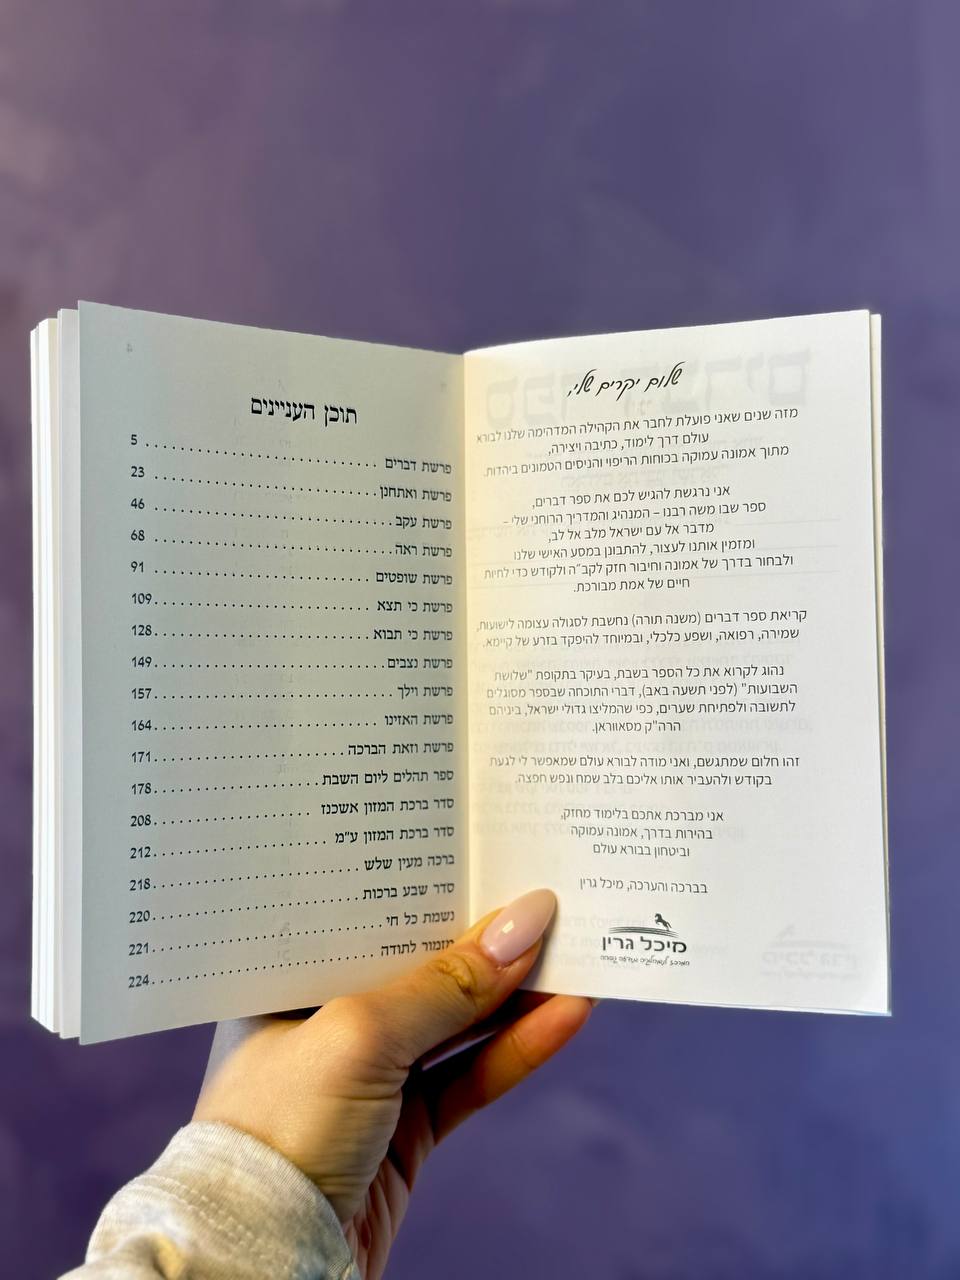 שלום יקרים שלי,
מזה שנים שאני פועלת לחבר את הקהילה המדהימה שלנו לבורא
עולם דרך לימוד, כתיבה ויצירה,
מתוך אמונה עמוקה בכוחות הריפוי והניסים הטמונים ביהדות.
אני נרגשת להגיש לכם את ספר דברים,
ספר שבו משה רבנו – המנהיג והמדריך הרוחני שלי –
מדבר אל עם ישראל מלב אל לב,
ומזמין אותנו לעצור, להתבונן במסע האישי שלנו
ולבחור בדרך של אמונה וחיבור חזק לקב״ה ולקודש כדי לחיות
חיים של אמת מבורכת.
קריאת ספר דברים (משנה תורה) נחשבת לסגולה עצומה לישועות,
שמירה, רפואה, ושפע כלכלי, ובמיוחד להיפקד בזרע של קיימא.
נהוג לקרוא את כל הספר בשבת, בעיקר בתקופת "שלושת
השבועות" (לפני תשעה באב), דברי התוכחה שבספר מסוגלים
לתשובה ולפתיחת שערים, כפי שהמליצו גדולי ישראל, ביניהם
הרה"ק מסאווראן.
זהו חלום שמתגשם, ואני מודה לבורא עולם שמאפשר לי לגעת
בקודש ולהעביר אותו אליכם בלב שמח ונפש חפצה.
אני מברכת אתכם בלימוד מחזק,
בהירות בדרך, אמונה עמוקה
וביטחון בבורא עולם
בברכה והערכה, מיכל גרין
מיכל גרין
4
תוכן העניינים
פרשת דברים ........ 5
פרשת ואתחנן ........ 23
פרשת עקב ........ 46
פרשת ראה ........ 68
פרשת שופטים ........ 91
פרשת כי תצא ........ 109
פרשת כי תבוא ........ 128
פרשת נצבים ........ 149
פרשת וילך ........ 157
פרשת האזינו ........ 164
פרשת וזאת הברכה ........ 171
ספר תהלים ליום השבת ........ 178
סדר ברכת המזון אשכנז ........ 208
סדר ברכת המזון ע״מ ........ 212
ברכה מעין שלש ........ 218
סדר שבע ברכות ........ 220
נשמת כל חי ........ 221
מזמור לתודה ........ 224